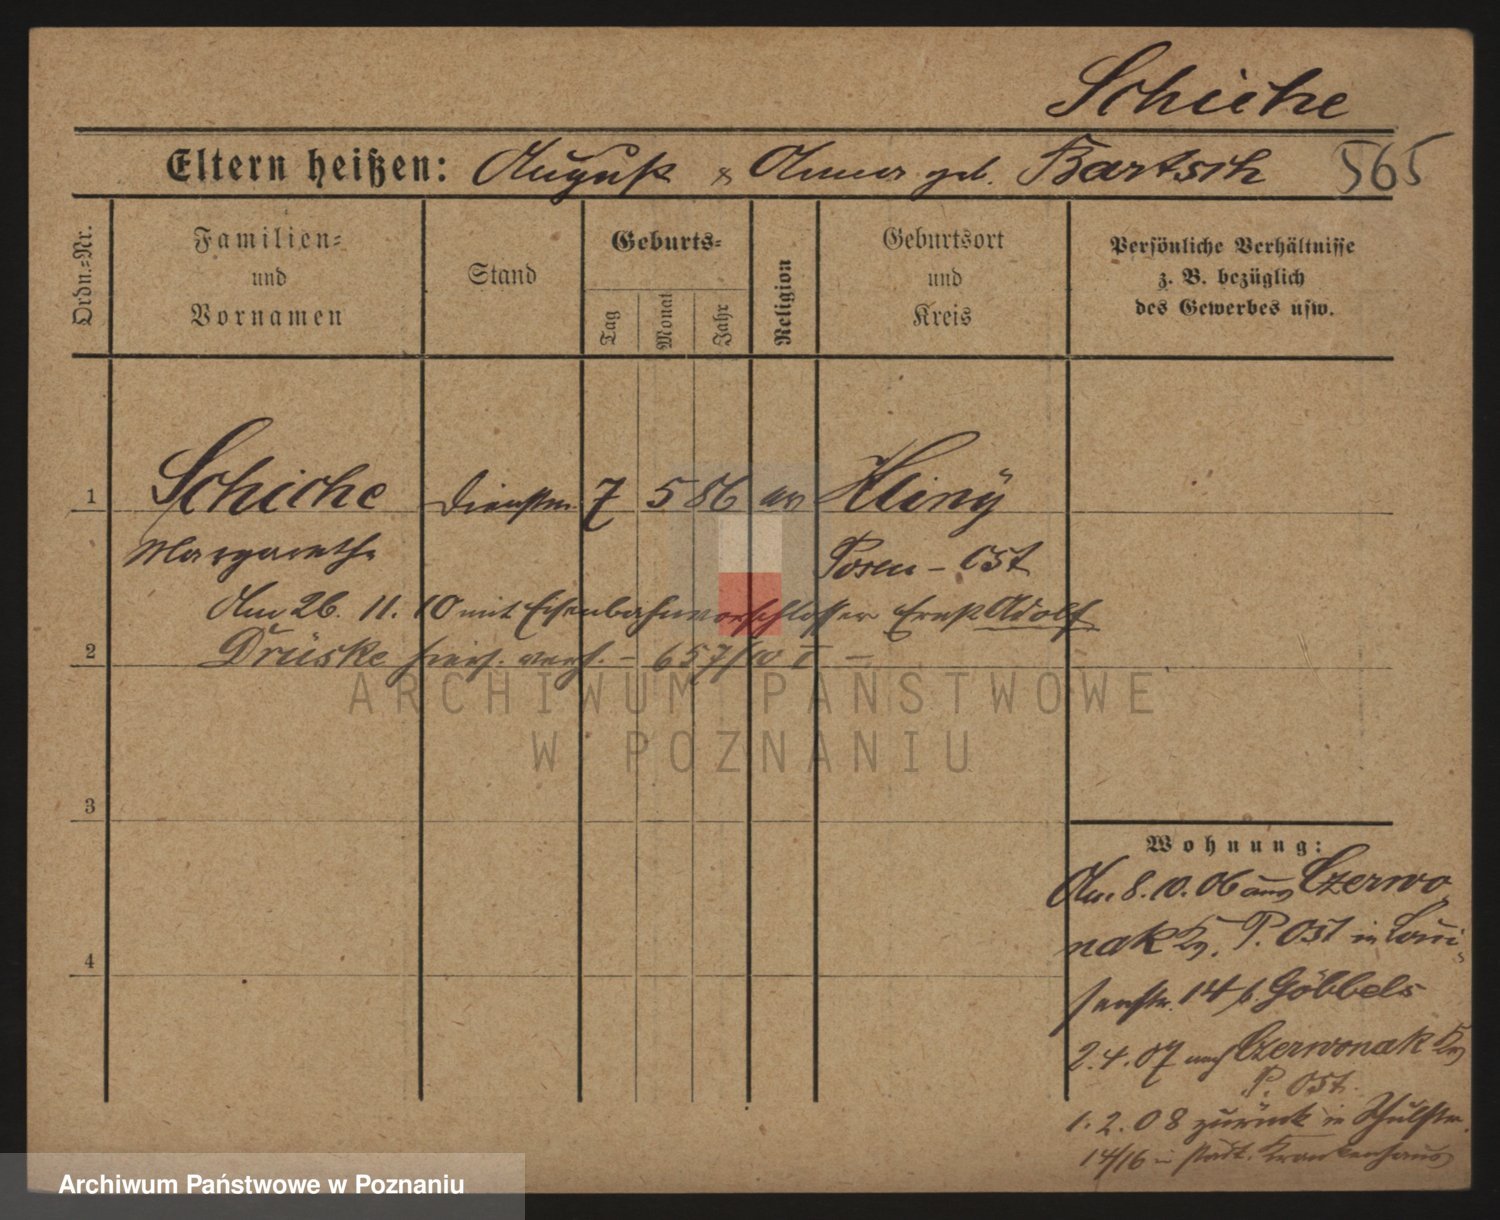 Schiche
Eltern heißen: August & Anna geb. Bartsch 565
Ordn.-Nr.
Familien-
und
Vornamen
Stand
Geburts-
Tag
Monat
Jahr
Religion
Geburtsort
und
Kreis
Persönliche Verhältnisse
z. B. bezüglich
des Gewerbes usw.
1 Schiche Dienstm. 7 5 86 ev
Margarethe Posen - Ost
Am 26. 11. 10 mit Eisenbahnvorschlosser Ernst Adolf
2 Drüske hiers. verh. - 657/10 I -
ARCHIWUM PAŃSTWOWE
W POZNANIU
3
4
Wohnung:
Am 8.10.06 aus Czerwo
nak Kr. P. Ost in Loui
senstr. 14 b. Göbbels
2.4.07 nach Czerwonak Kr
P. Ost.
1.2.08 zurück in Schulstr.
14/16 in städt. Krankenhaus
Archiwum Państwowe w Poznaniu